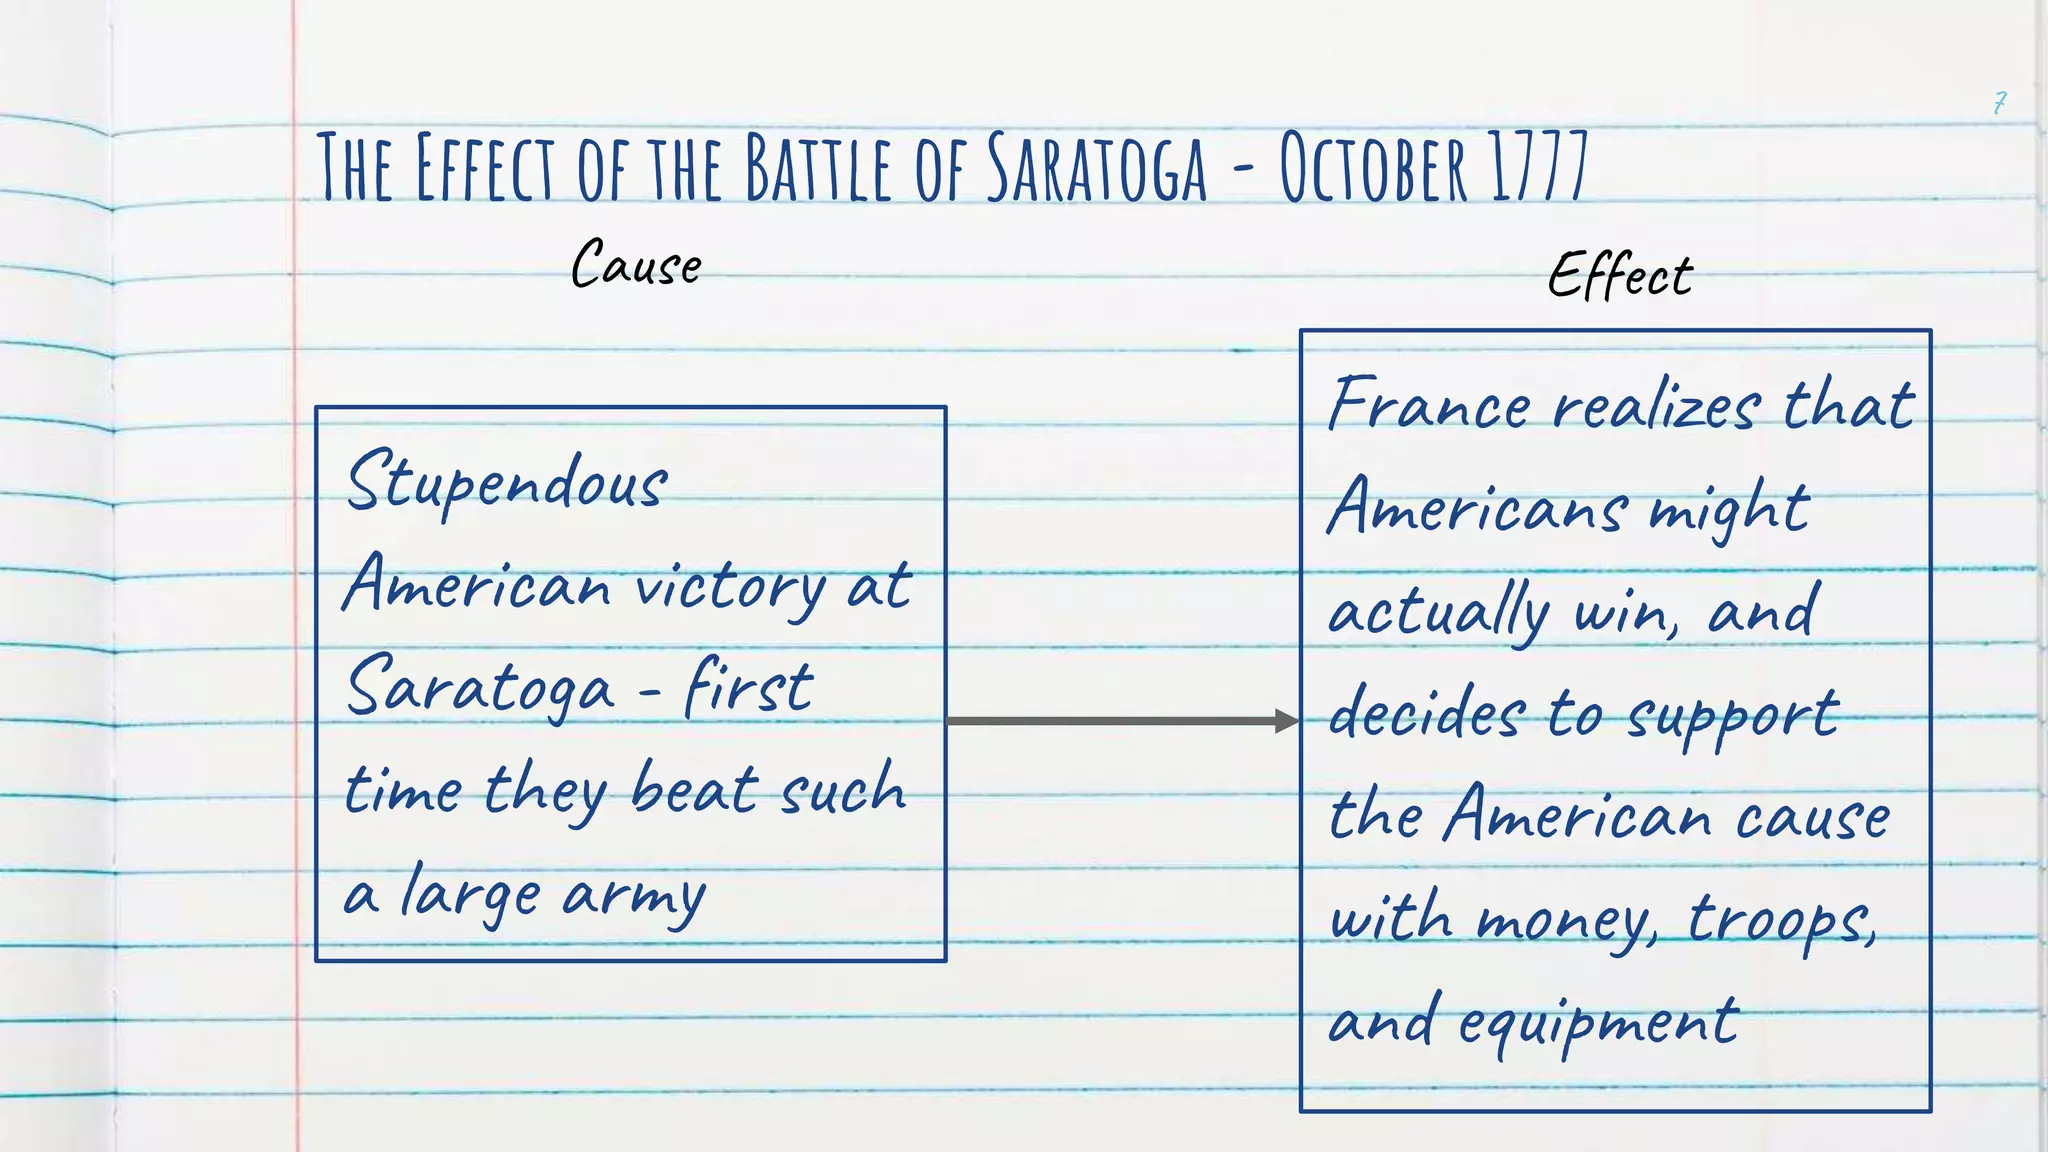 7
The Effect of the Battle of Saratoga - October 1777
Cause
Effect
Stupendous
American victory at
Saratoga - first
time they beat such
a large army
France realizes that
Americans might
actually win, and
decides to support
the American cause
with money, troops,
and equipment